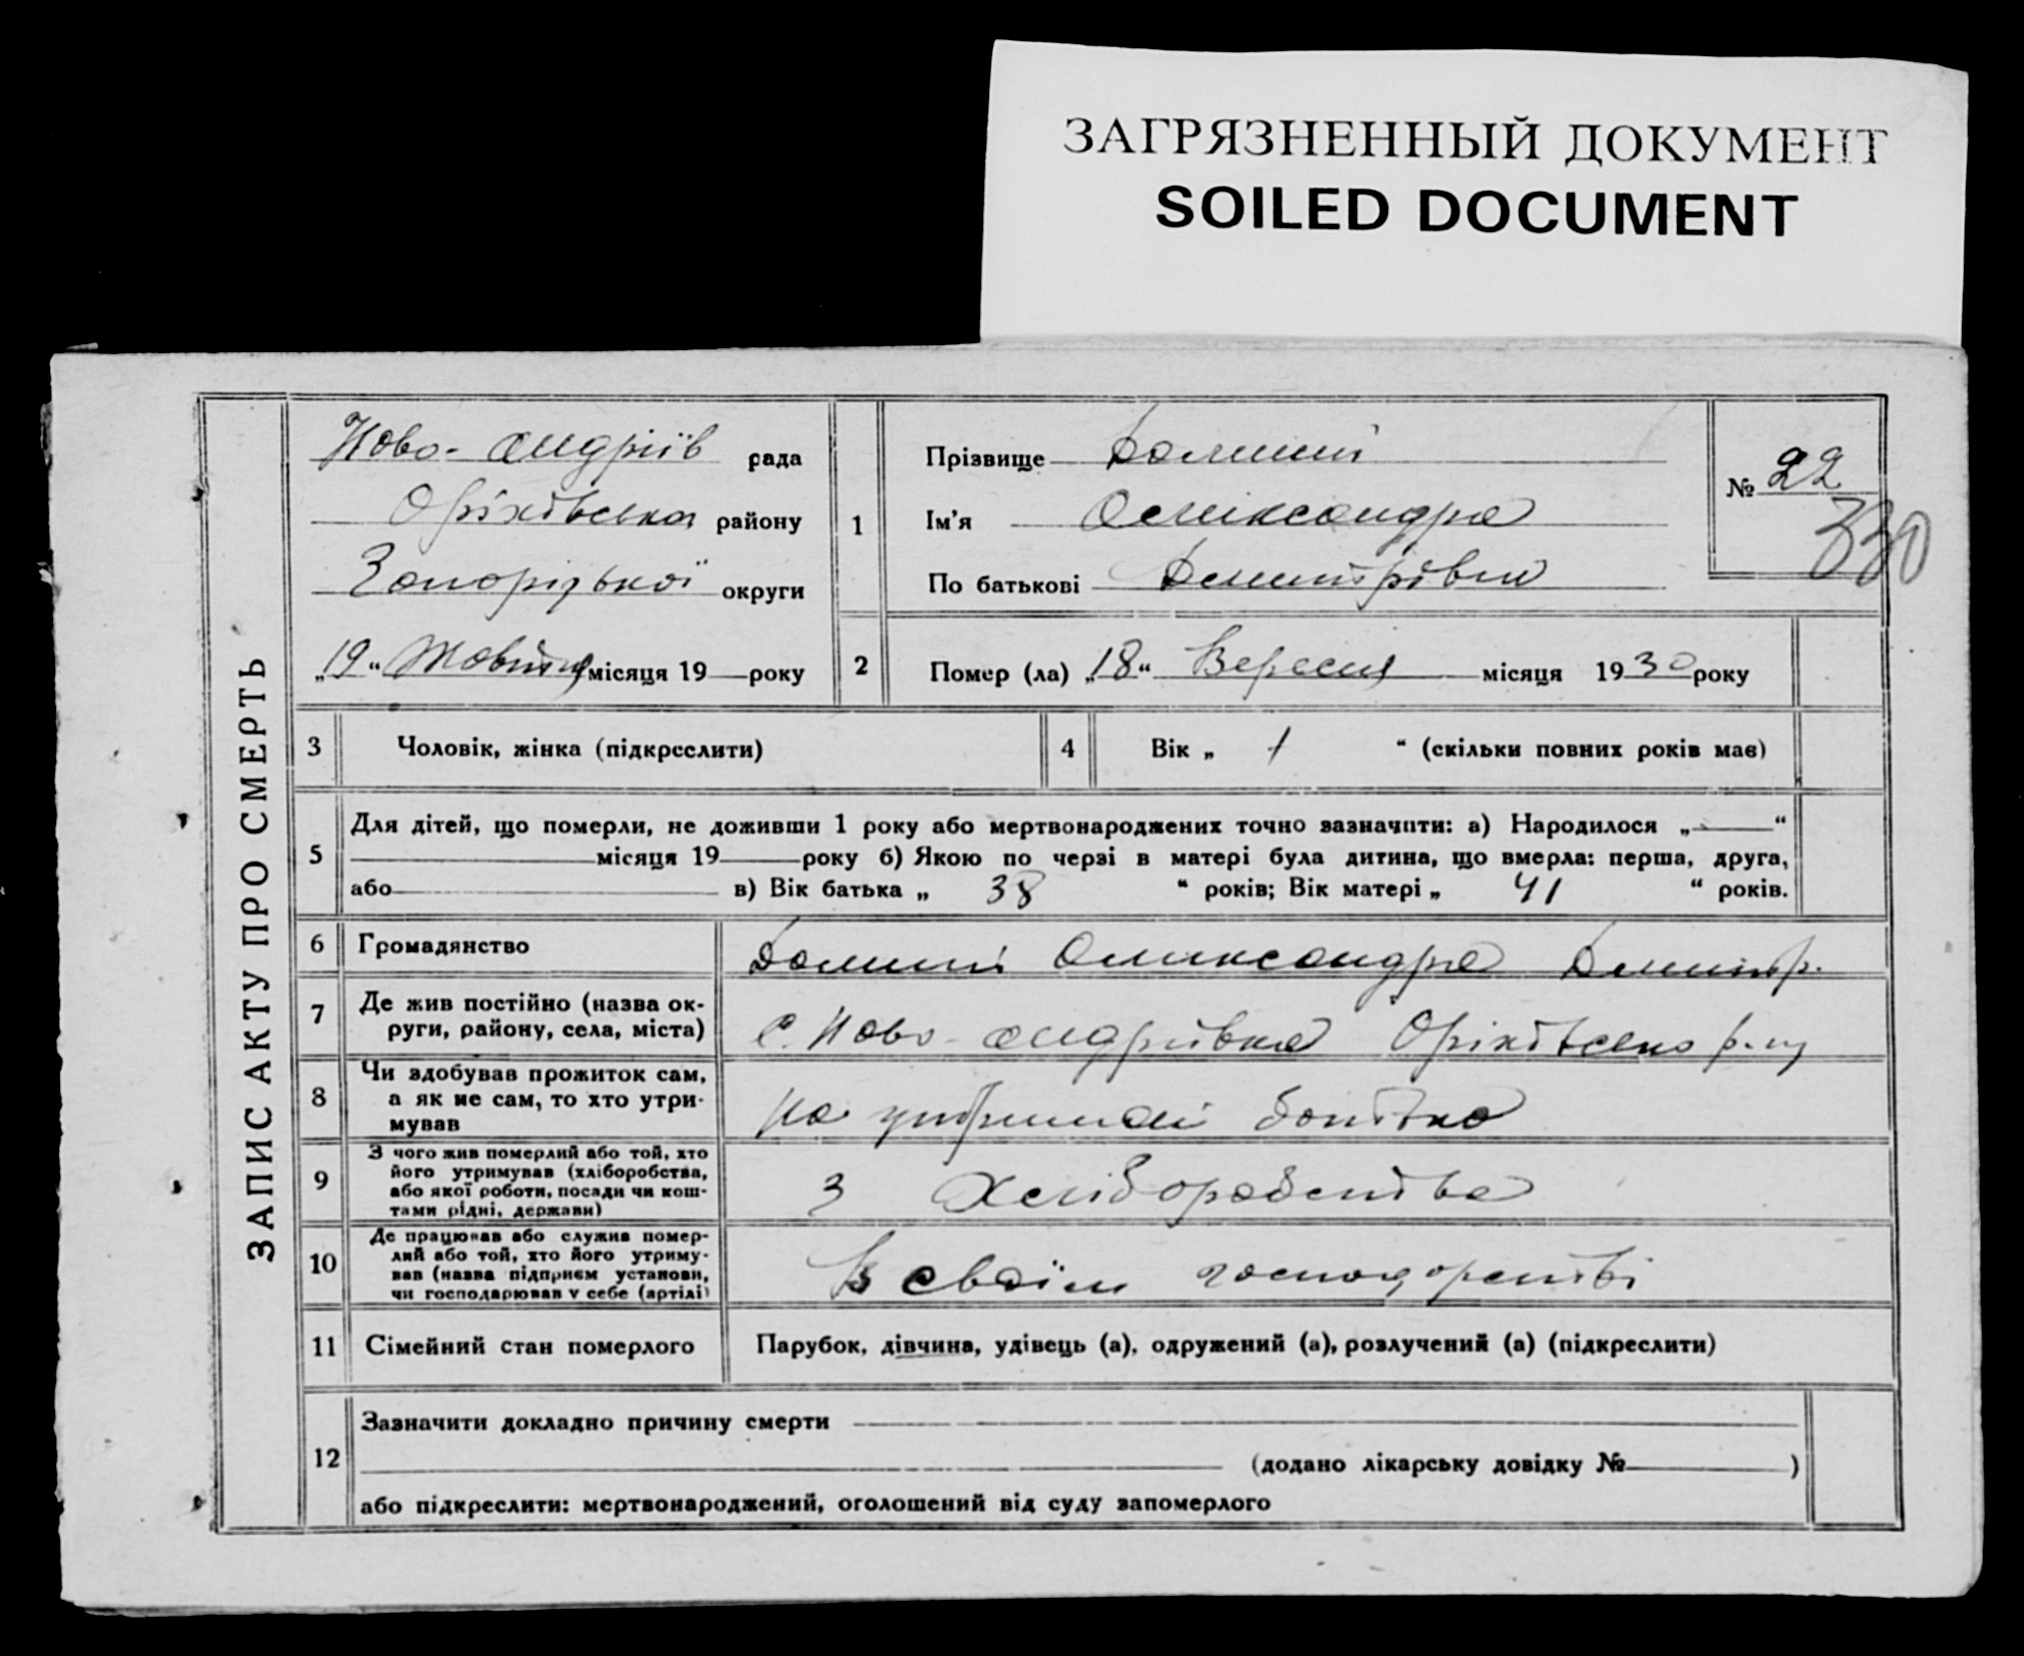 ЗАГРЯЗНЕННЫЙ ДОКУМЕНТ
SOILED DOCUMENT
ЗАПИС АКТУ ПРО СМЕРТЬ
Ново-Андріїв рада
Оріхівська району
Запорізької округи
„19“ Жовтня місяця 19 року
1
Прізвище
Ім'я Олександра
По батькові Дмитрівна
№ 22
330
2 Помер (ла) „18“ Вересня місяця 1930 року
3 Чоловік, жінка (підкреслити)
4 Вік „ 1 “ (скільки повних років має)
5 Для дітей, що померли, не доживши 1 року або мертвонароджених точно зазначити: а) Народилося „ “
місяця 19 року б) Якою по черзі в матері була дитина, що вмерла: перша, друга,
або в) Вік батька „ 38 “ років; Вік матері „ 41 “ років.
6 Громадянство Олександра Дмитр.
7 Де жив постійно (назва ок-
руги, району, села, міста)
с. Ново-Андріївка Оріхівсько р-ну
8 Чи здобував прожиток сам,
а як не сам, то хто утри-
мував
на утриманні батька
9 З чого жив померлий або той, хто
його утримував (хліборобства,
або якої роботи, посади чи кош-
тами рідні, держави)
З Хліборобства
10 Де працював або служив помер-
лий або той, хто його утриму-
вав (назва підприєм установи,
чи господарював у себе (артілі)
В своїм господарстві
11 Сімейний стан померлого Парубок, дівчина, удівець (а), одружений (а), розлучений (а) (підкреслити)
12 Зазначити докладно причину смерти
(додано лікарську довідку № )
або підкреслити: мертвонароджений, оголошений від суду запомерлого